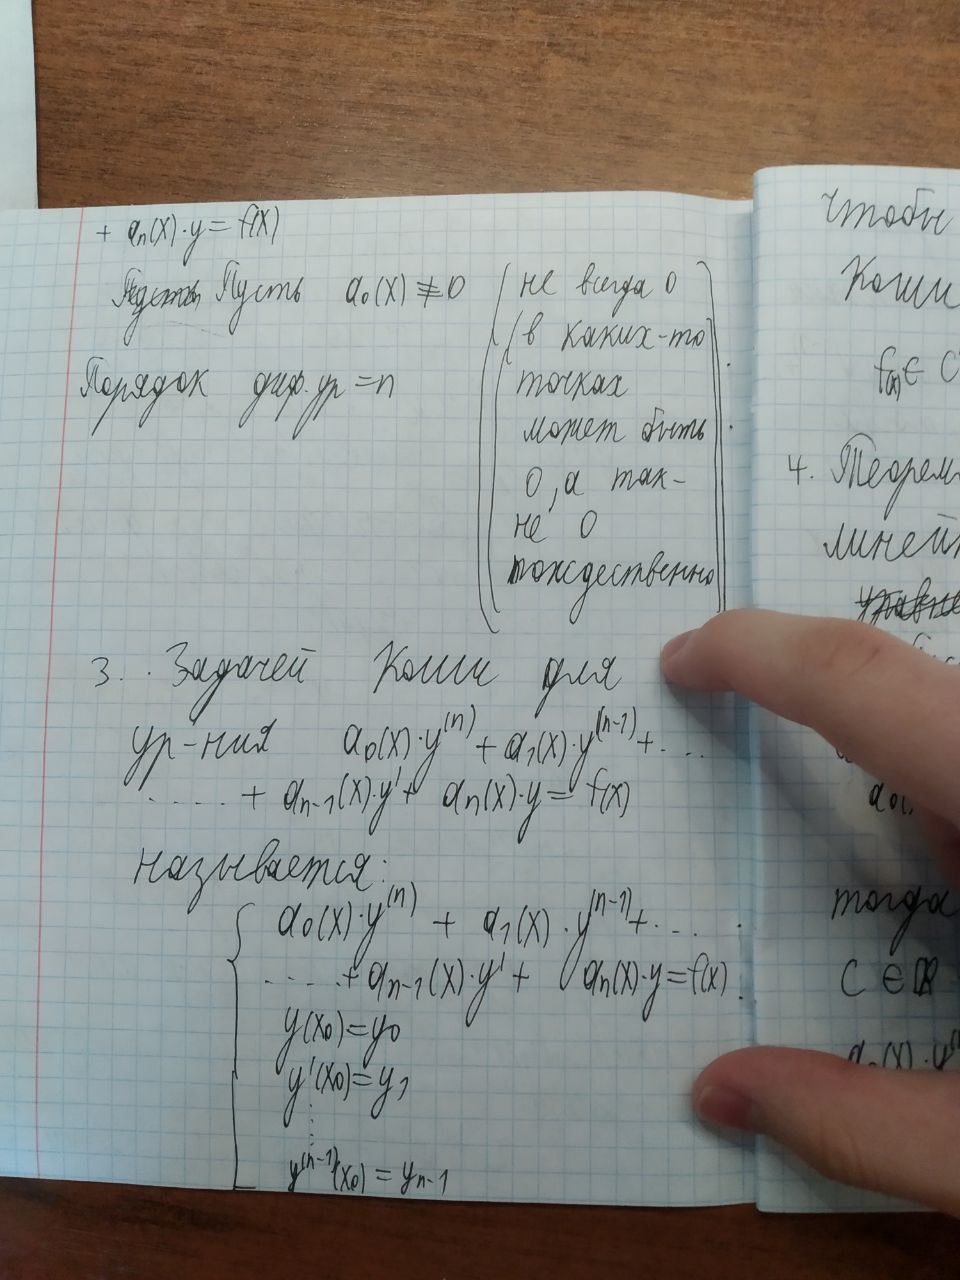 + aₙ(x)·y = f(x)
Пусть a₀(x) ≢ 0
(не всегда 0
(в каких-то
точках
может быть
0, а так-
не 0
тождественно
Порядок диф. ур = n
3. Задачей Коши для
ур-ния a₀(x)·y⁽ⁿ⁾ + a₁(x)·y⁽ⁿ⁻¹⁾ + ...
..... + aₙ₋₁(x)·y' + aₙ(x)·y = f(x)
называется:
{ a₀(x)·y⁽ⁿ⁾ + a₁(x)·y⁽ⁿ⁻¹⁾ + ...
..... + aₙ₋₁(x)·y' + aₙ(x)·y = f(x)
y(x₀) = y₀
y'(x₀) = y₁
⋮
y⁽ⁿ⁻¹⁾(x₀) = yₙ₋₁
Чтобы
Коши
f(x) ∈ C
4. Теорем
линей
a₀(
тогда
C ∈ ℝ
a₀(x)·y⁽